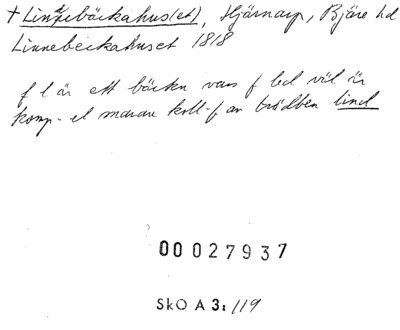 † Linnebäckahus(et), Hjärnarp, Bjäre hd
Linnebeckahuset 1818
f l är ett bäckn vars f led väl är
komp.- el snarare koll-f av trädben lind
00027937
SkO A 3: 119